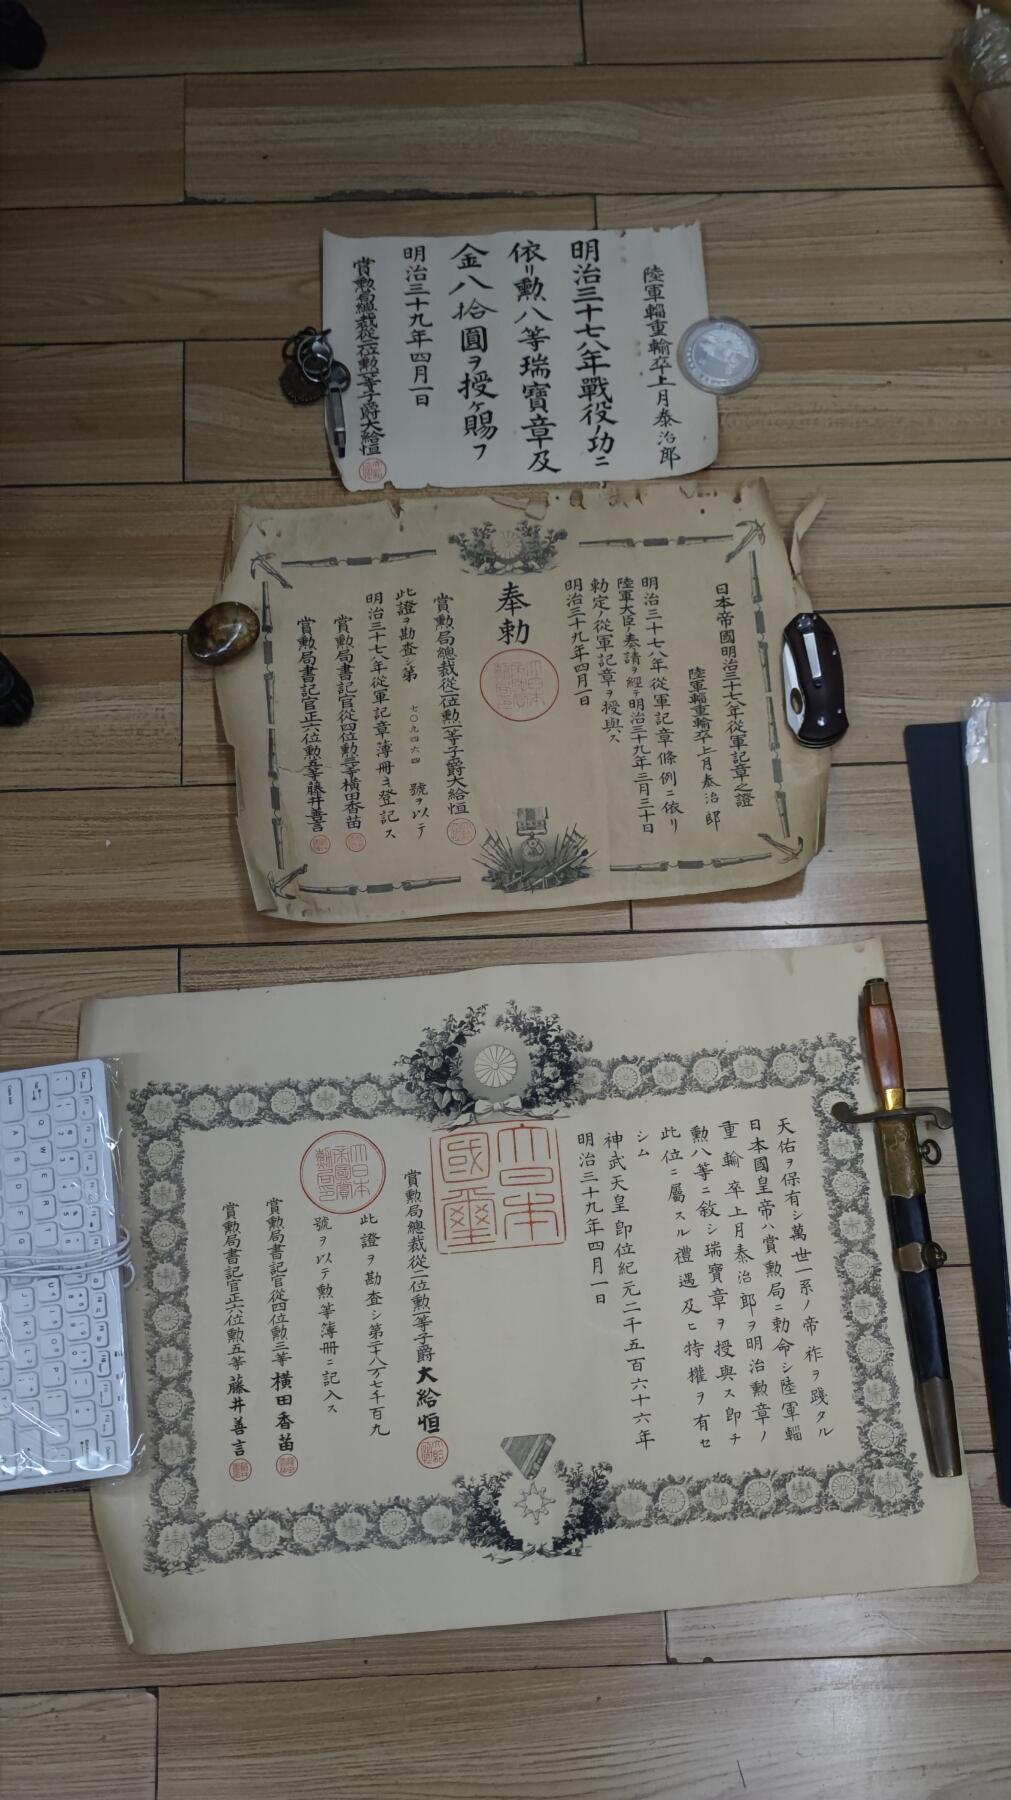 陸軍輜重輸卒上月泰治郎
明治三十七八年戰役ノ功ニ
依リ勲八等瑞寶章及
金八拾圓ヲ授ケ賜フ
明治三十九年四月一日
賞勲局總裁從二位勲一等子爵大給恒
日本帝國明治三十七八年從軍記章之證
陸軍輜重輸卒上月泰治郎
明治三十七八年從軍記章條例ニ依リ
陸軍大臣ノ奏請ヲ經テ明治三十九年三月三十日
勅定ノ從軍記章ヲ授與ス
明治三十九年四月一日
奉勅
賞勲局總裁從二位勲一等子爵大給恒
此證ヲ勘査シ第七〇九四六四號ヲ以テ
明治三十七八年從軍記章簿冊ニ登記ス
賞勲局書記官從四位勲三等横田香苗
賞勲局書記官正六位勲五等藤井善言
天佑ヲ保有シ萬世一系ノ帝祚ヲ踐タル
日本國皇帝ハ賞勲局ニ勅命シ陸軍輜
重輸卒上月泰治郎ヲ明治勲章ノ
勲八等ニ敘シ瑞寶章ヲ授與ス即チ
此位ニ屬スル禮遇及ヒ特權ヲ有セ
シム
神武天皇即位紀元二千五百六十六年
明治三十九年四月一日
大日本國璽
賞勲局總裁從二位勲一等子爵大給恒
此證ヲ勘査シ第二十八万七千百九
號ヲ以テ勲等簿冊ニ記入ス
賞勲局書記官從四位勲三等横田香苗
賞勲局書記官正六位勲五等藤井善言